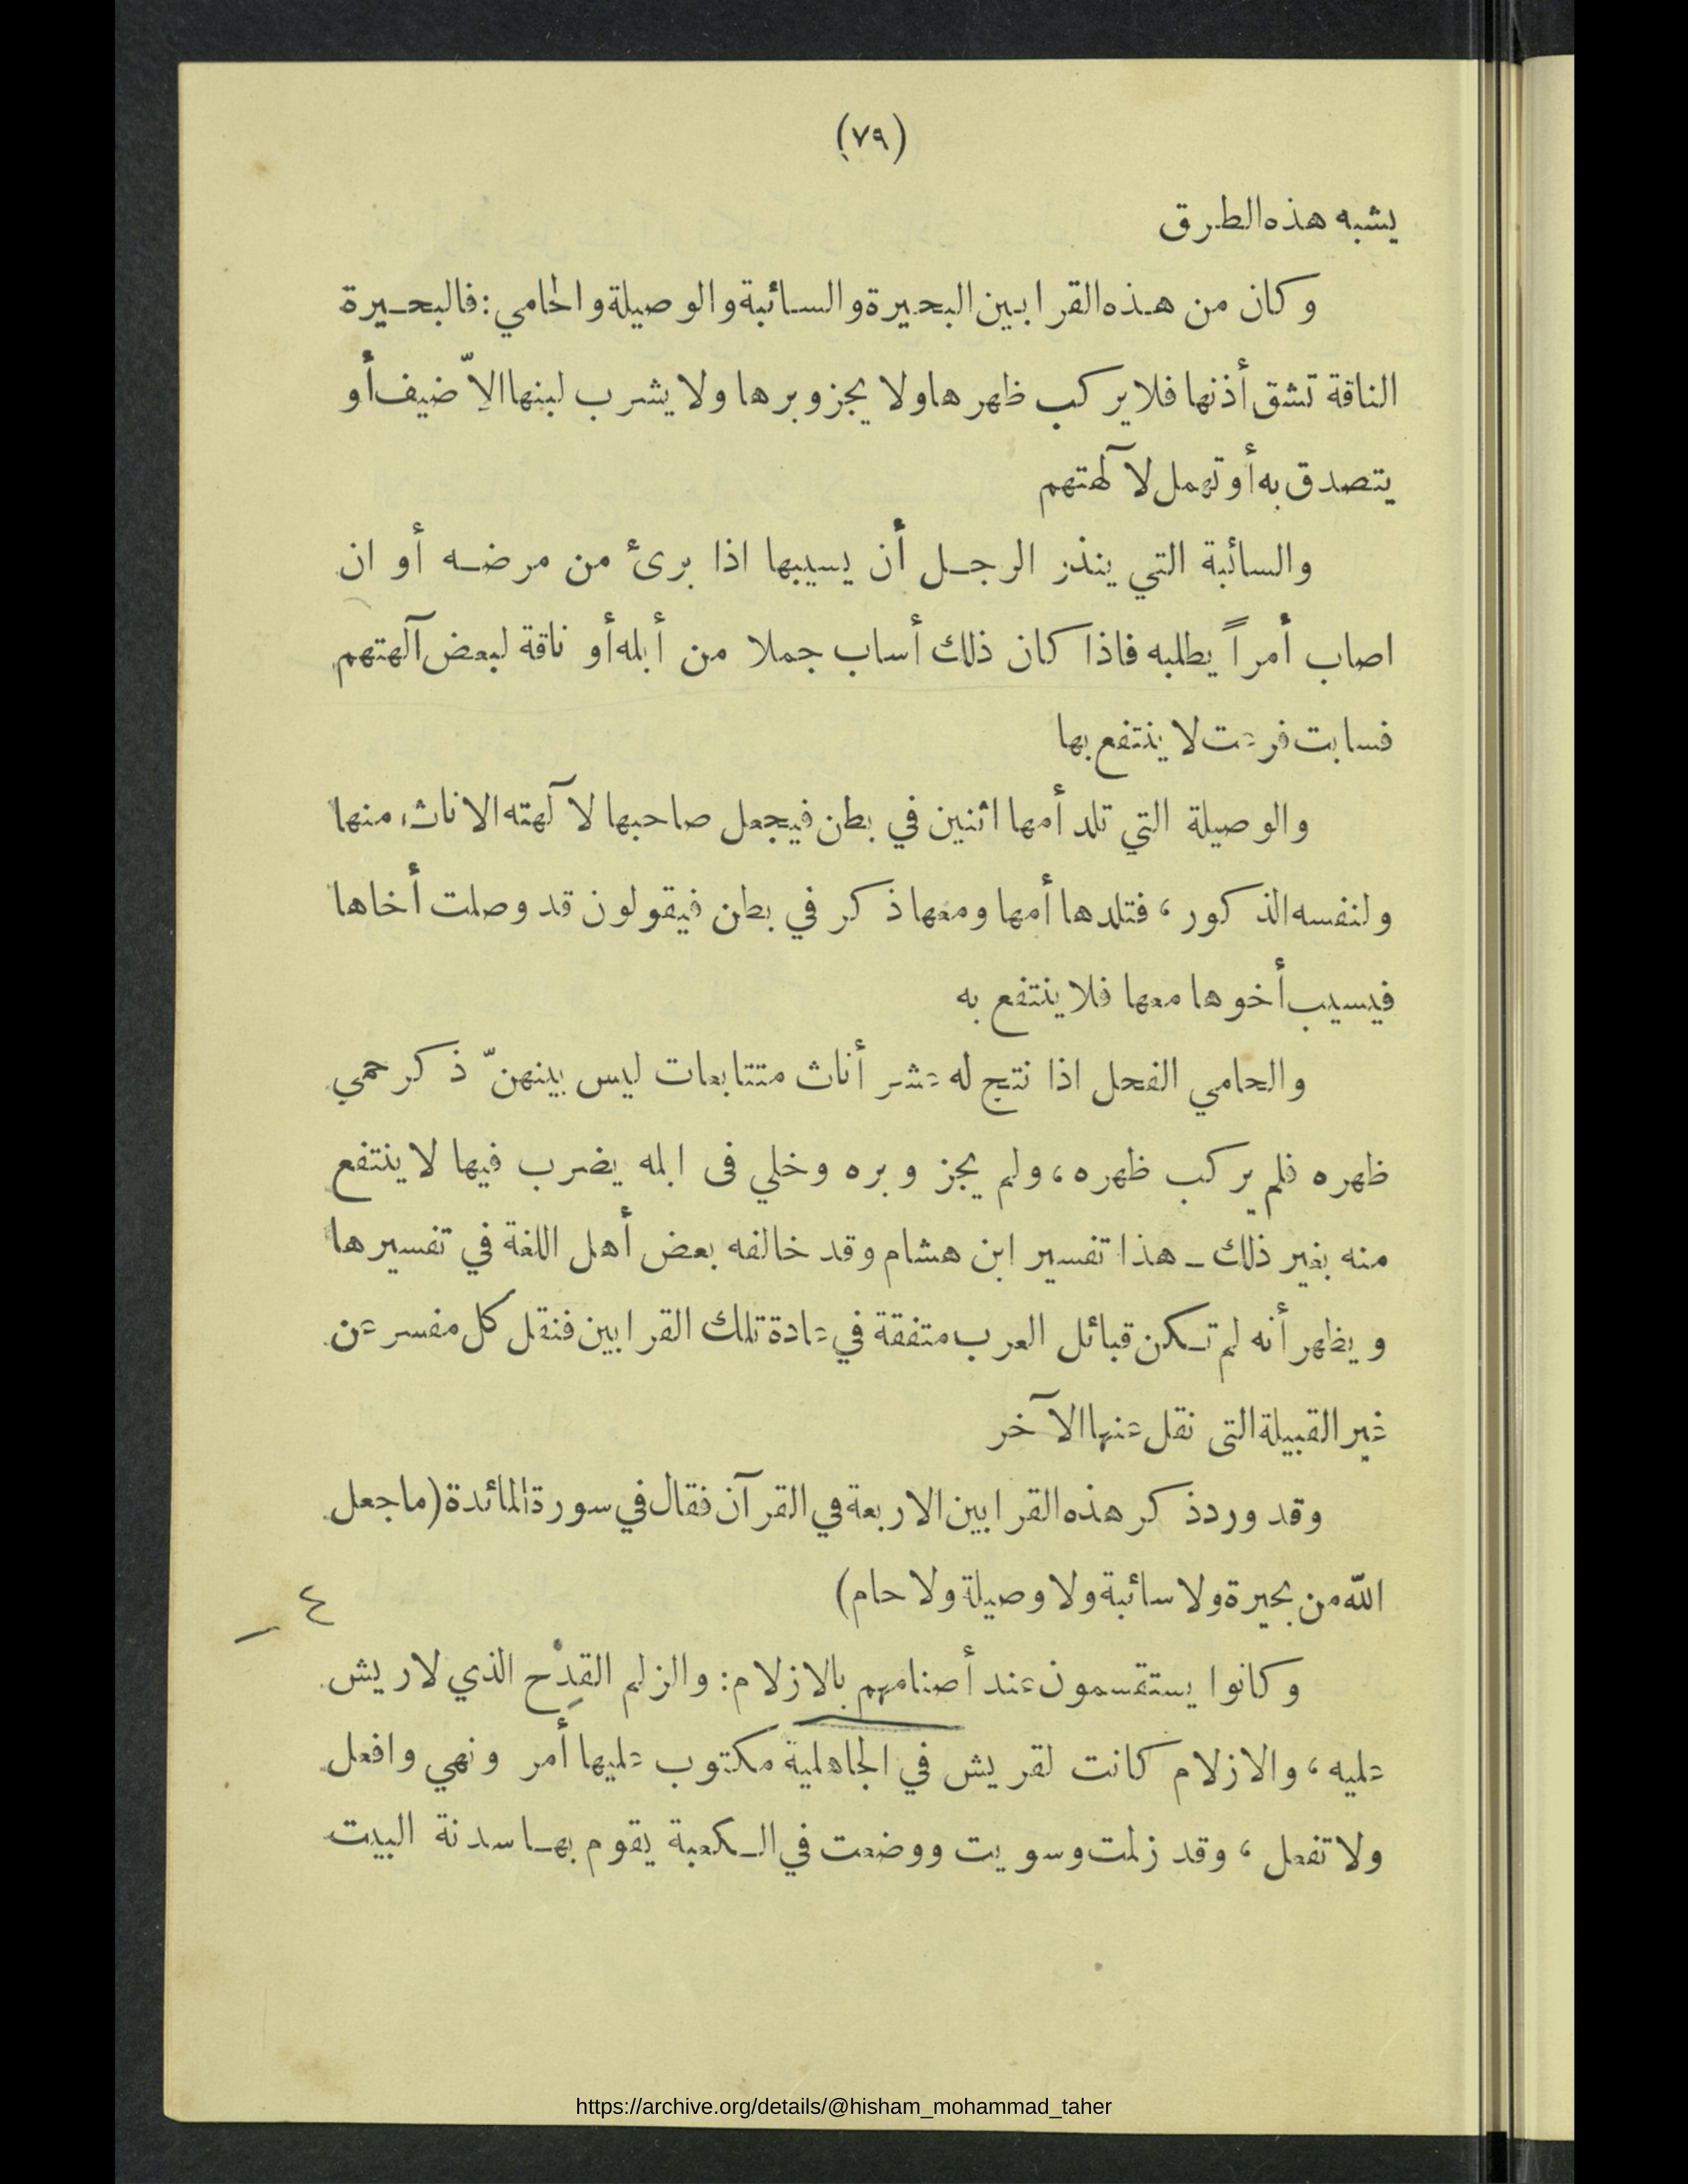 (٧٩)
يشبه هذه الطرق
وكان من هذه القرابين البحيرة والسائبة والوصيلة والحامي: فالبحيرة
الناقة تشق أذنها فلا يركب ظهرها ولا يجز وبرها ولا يشرب لبنها إلاّ ضيف أو
يتصدق به أو تهمل لآلهتهم
والسائبة التي ينذر الرجل أن يسيبها اذا برئ من مرضه أو ان
اصاب أمراً يطلبه فاذا كان ذلك أساب جملا من أبله أو ناقة لبعض آلهتهم
فسابت فرعت لا ينتفع بها
والوصيلة التي تلد أمها اثنين في بطن فيجعل صاحبها لآلهته الاناث، منها
ولنفسه الذكور، فتلدها أمها ومعها ذكر في بطن فيقولون قد وصلت أخاها
فيسيب أخوها معها فلا ينتفع به
والحامي الفحل اذا نتج له عشر أناث متتابعات ليس بينهنّ ذكر حمي
ظهره فلم يركب ظهره، ولم يجز وبره وخلي فى ابله يضرب فيها لا ينتفع
منه بغير ذلك ـ هذا تفسير ابن هشام وقد خالفه بعض أهل اللغة في تفسيرها
ويظهر أنه لم تكن قبائل العرب متفقة في عادة تلك القرابين فنقل كل مفسر عن
غير القبيلة التى نقل عنها الآخر
وقد ورد ذكر هذه القرابين الاربعة في القرآن فقال في سورة المائدة (ما جعل
الله من بحيرة ولا سائبة ولا وصيلة ولا حام)
٤
وكانوا يستقسمون عند أصنامهم بالازلام: والزلم القِدْح الذي لا ريش
عليه، والازلام كانت لقريش في الجاهلية مكتوب عليها أمر ونهي وافعل
ولا تفعل، وقد زلمت وسويت ووضعت في الكعبة يقوم بها سدنة البيت
https://archive.org/details/@hisham_mohammad_taher